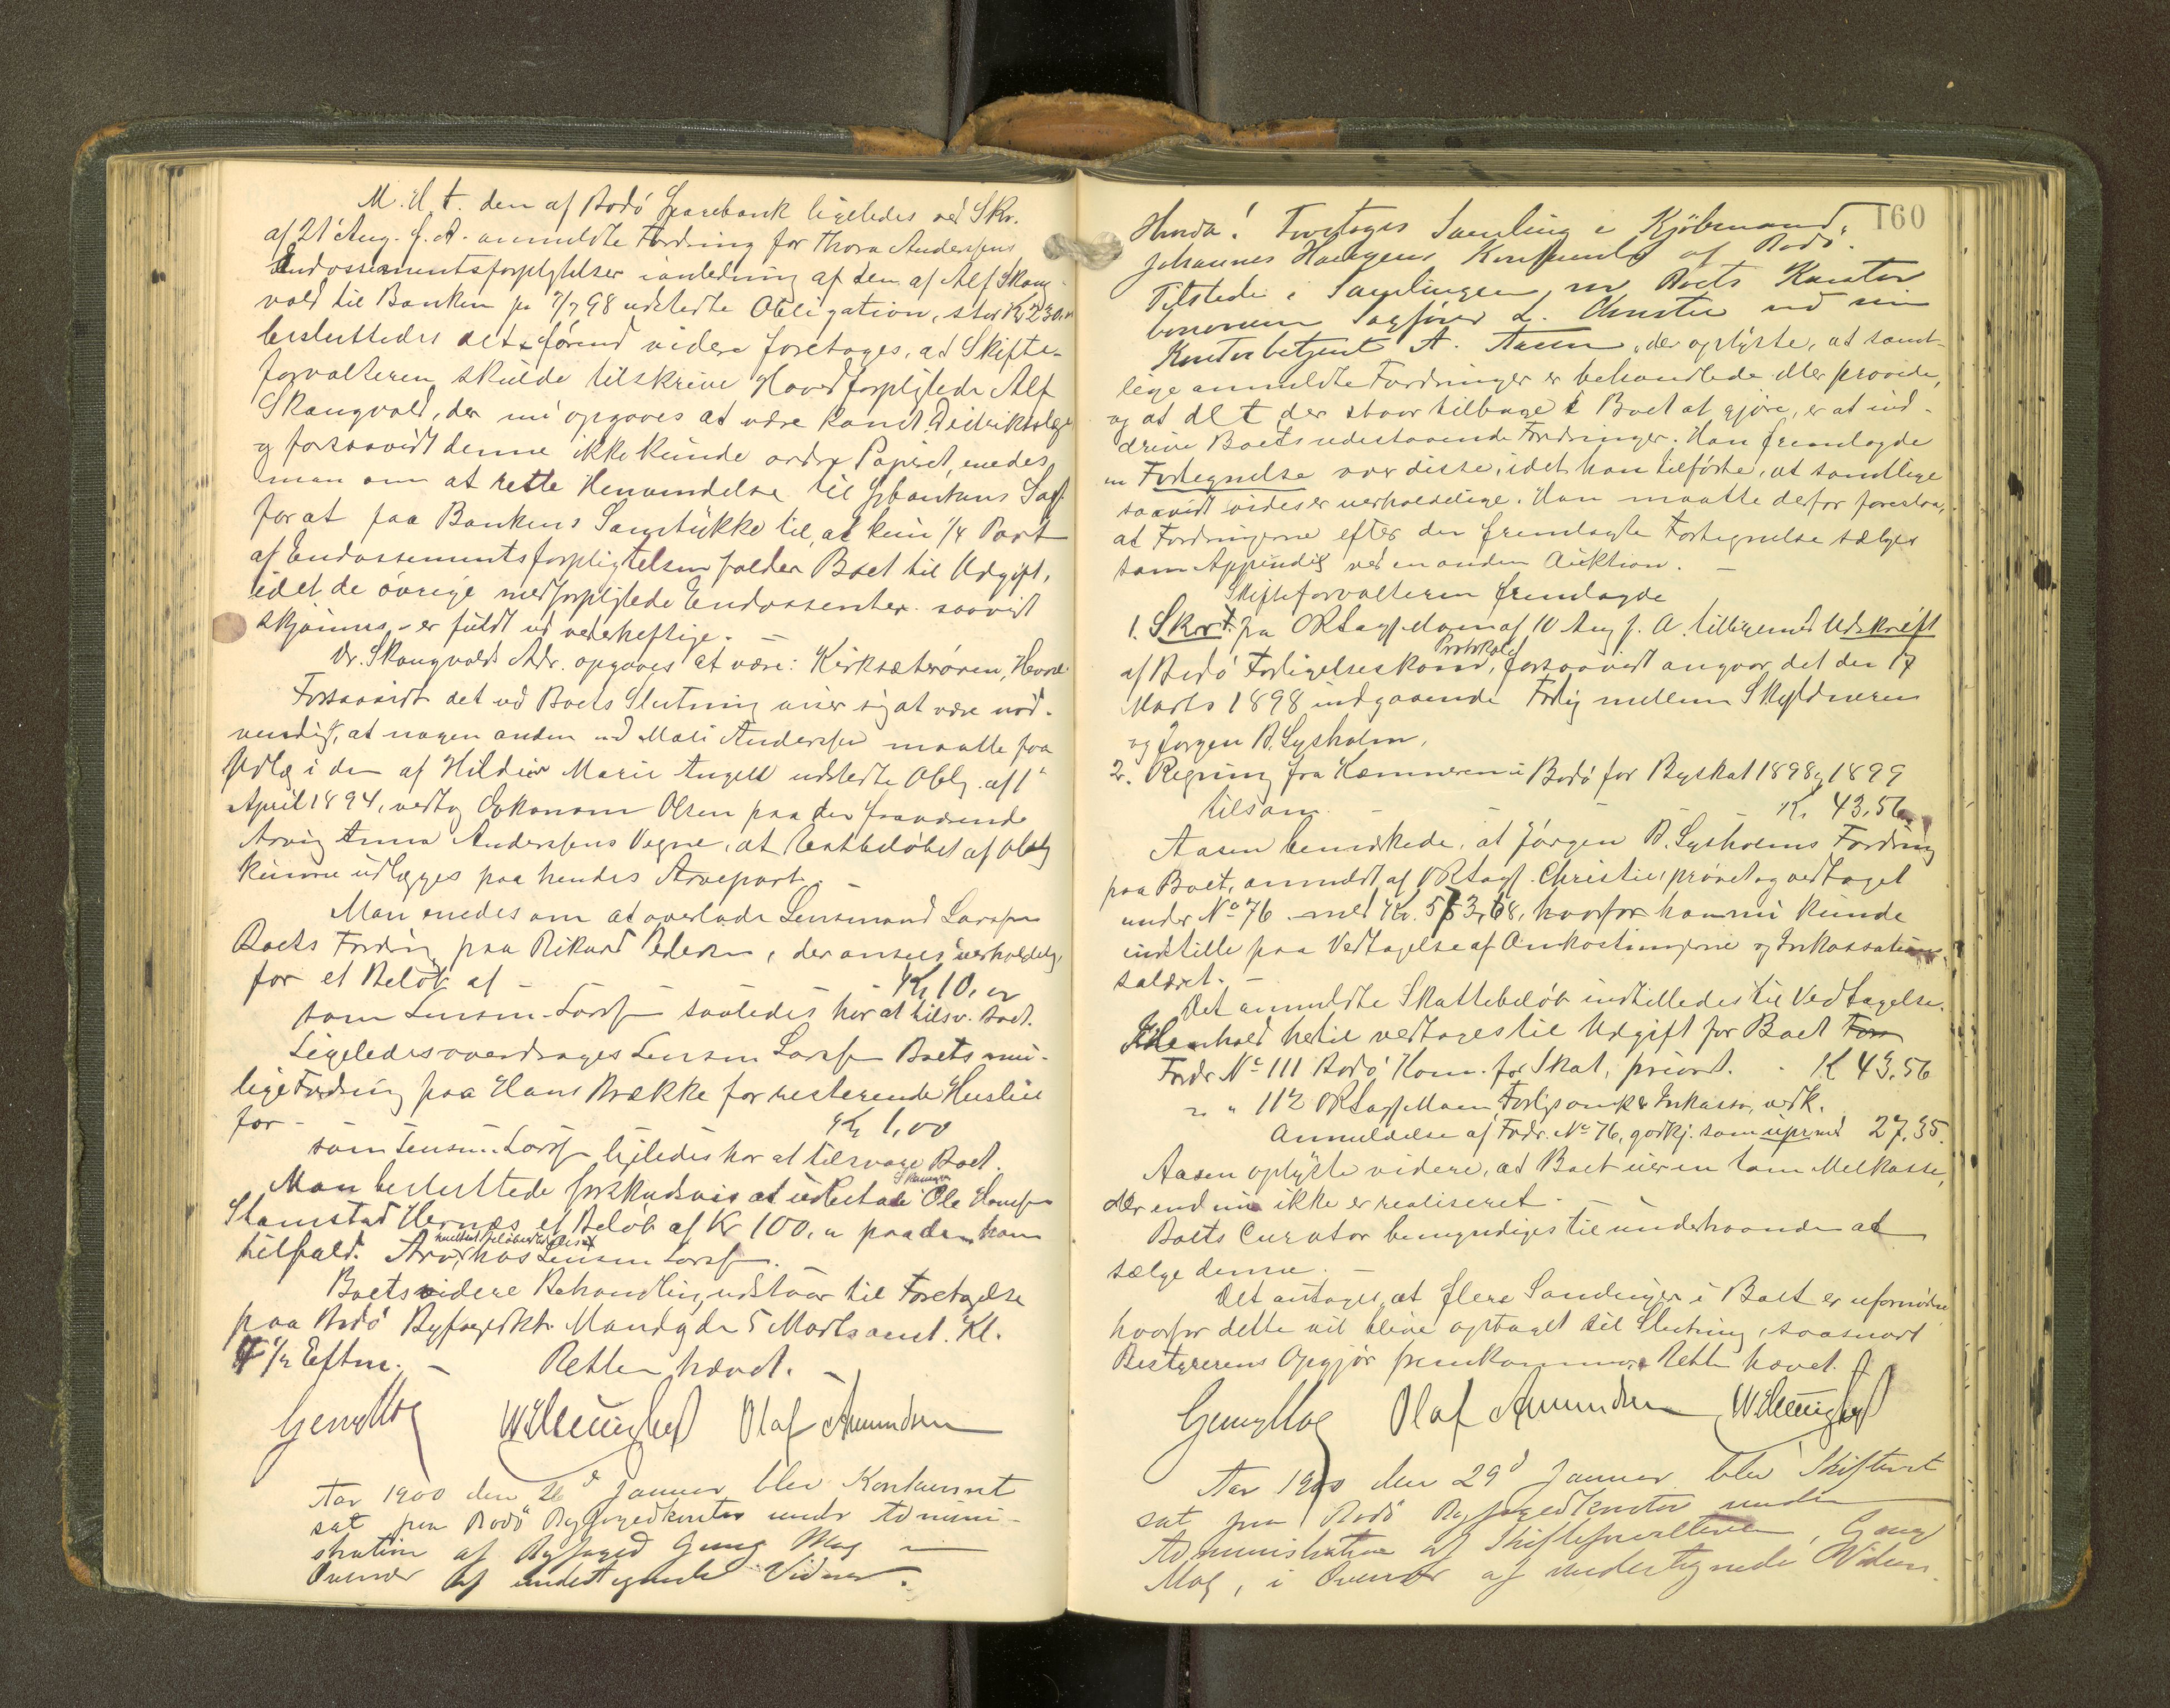 M. H. t. den af Bodö Sparebank ligeledes ved Skr.
af 21 Aug. f. A. anmeldte Fordring for Thora Anderssens
Endossementsforpligtelser i anledning af den af Alf Skang-
vold til Banken pr 7/7 98 udstedte Obligation, stor Kr 230.
besluttedes det, förend videre foretages, at Skifte-
forvalteren skulde tilskrive Hovedforpligtede Alf
Skangvold, der nu opgaves at være
og forsaavidt denne ikke kunde ordre Papiret, enedes
man om at rette Henvendelse til Sparebankens
for at faa Bankens Samtykke til, at kun 1/4 Part
af Endossementsforpligtelsen falder Boet til Udgift,
idet de övrige medforpligtede Endossenter saavidt
skjönnes - er fuldt ud vederheftige. -
Dr. Skangvolds Adr. opgaves at være: Kirksæterören, Hevne
Forsaavidt det ved Boets Slutning viser sig at være nöd-
vendigt, at nogen anden end Mali Anderssen maatte faa
Udlæg i den af Hildeur Marie Angell udstedte Oblg. af 1
April 1894, vedtog Ökonom Olsen paa den fraværende
Arving Anna Anderssens Vegne, at Restbelöbet af Oblg
kunne udlægges paa hendes Arvepart. -
Man enedes om at overlade Lensmand Larssen
Boets Fordring paa Rikard Pedersen, der ansees uerholdelig,
for et Belöb af - - Kr 10. "
som Lensm. Larss saaledes har at tilsv. Boet.
Ligeledes overdrages Lensm Larssen Boets mu-
lige Fordring paa Hans Brække for resterende Husleie
for - Kr 1,00
som Lensm. Larss ligeledes har at tilsvare Boet.
Man besluttede forskudsvis at udbetale Ole Hanssen
Stamstad Hernæs et Belöb af Kr 100, " paa den ham
hvilket Belöb
tilfald. Arv, hos Lensm Larss. -
Boets videre Behandling udstaar til Foretagelse
paa Bodö Byfogedktr. Mandag den 5 Marts anst. Kl.
4 1/2 Eftm. - Retten hævet. -
Georg Mog Olaf Amundsen
Aar 1900 den 26d Januar blev Konkursret
sat paa Bodö Byfogedkontor under Admini-
stration af Byfoged Georg Mog i
Overvær af undertegnede Vidner.
160
Hvorda! Foretoges Samling i Kjöbmand
Johannes Haugens Konkursbo af Bodö.
Tilstede i Samlingen var Boets Kurator
bonorum Sagförer L. Christie ved sin
Kontorbetjent A. Aasen, der oplyste, at samt-
lige anmeldte Fordringer er behandlede eller prövede,
og at det, der staar tilbage i Boet at gjöre, er at ind-
drive Boets udestaaende Fordringer. Han fremlagde
en Fortegnelse over disse, idet han tilförte, at samtlige
saavidt vides er uerholdelige. Han maatte derfor foreslaa,
at Fordringerne efter den fremlagte Fortegnelse sælges
som Appendix ved en anden Auktion. -
Skifteforvalteren fremlagde
1. Skr. fra ORSagf. Moen af 10 Aug f. A. tilligemed Udskrift
Protokol
af Bodö Forligelseskom, forsaavidt angaar det den 17
Marts 1898 indgaaende Forlig mellem Skyldneren
og Jørgen B. Lysholm,
2. Regning fra Kæmneren i Bodö for Byskat 1898 og 1899
tilsam. - - - - Kr. 43,56
Aasen bemærkede, at Jörgen B. Lysholms Fordring
paa Boet, anmeldt af ORSagf. Christie, prövet og vedtaget
under No 76 med Kr. 563,68, hvorfor han nu kunde
indstille paa Vedtagelse af Omkostningerne og Inkassations-
salæret. -
Det anmeldte Skattebelöb indstilledes til Vedtagelse.
I Henhold hertil vedtoges til Udgift for Boet For
Fordr. No 111 Bodö Kom. for Skat, priort. - K 43,56
" " 112 ORSagf. Moen, Forligsomk. & Inkasso, vedk.
Anmeldelse af Fordr. No 76, godkj. som uprivs 27,35.
Aasen oplyste videre, at Boet eier en tom Melkasse,
der endnu ikke er realiseret. -
Boets Curator bemyndiges til underhaanden at
sælge denne. -
Det antages, at flere Samlinger i Boet er ufornödne
hvorfor dette vil blive optaget til Slutning, saasnart
Bestyrerens Opgjör fremkommer. Retten hævet.
Georg Mog Olaf Amundsen
Aar 1900 den 29d Januar blev Skifteret
sat paa Bodö Byfogedkontor under
Administration af Skifteforvalteren, Georg
Mog, i Overvær af undertegnede Vidner.